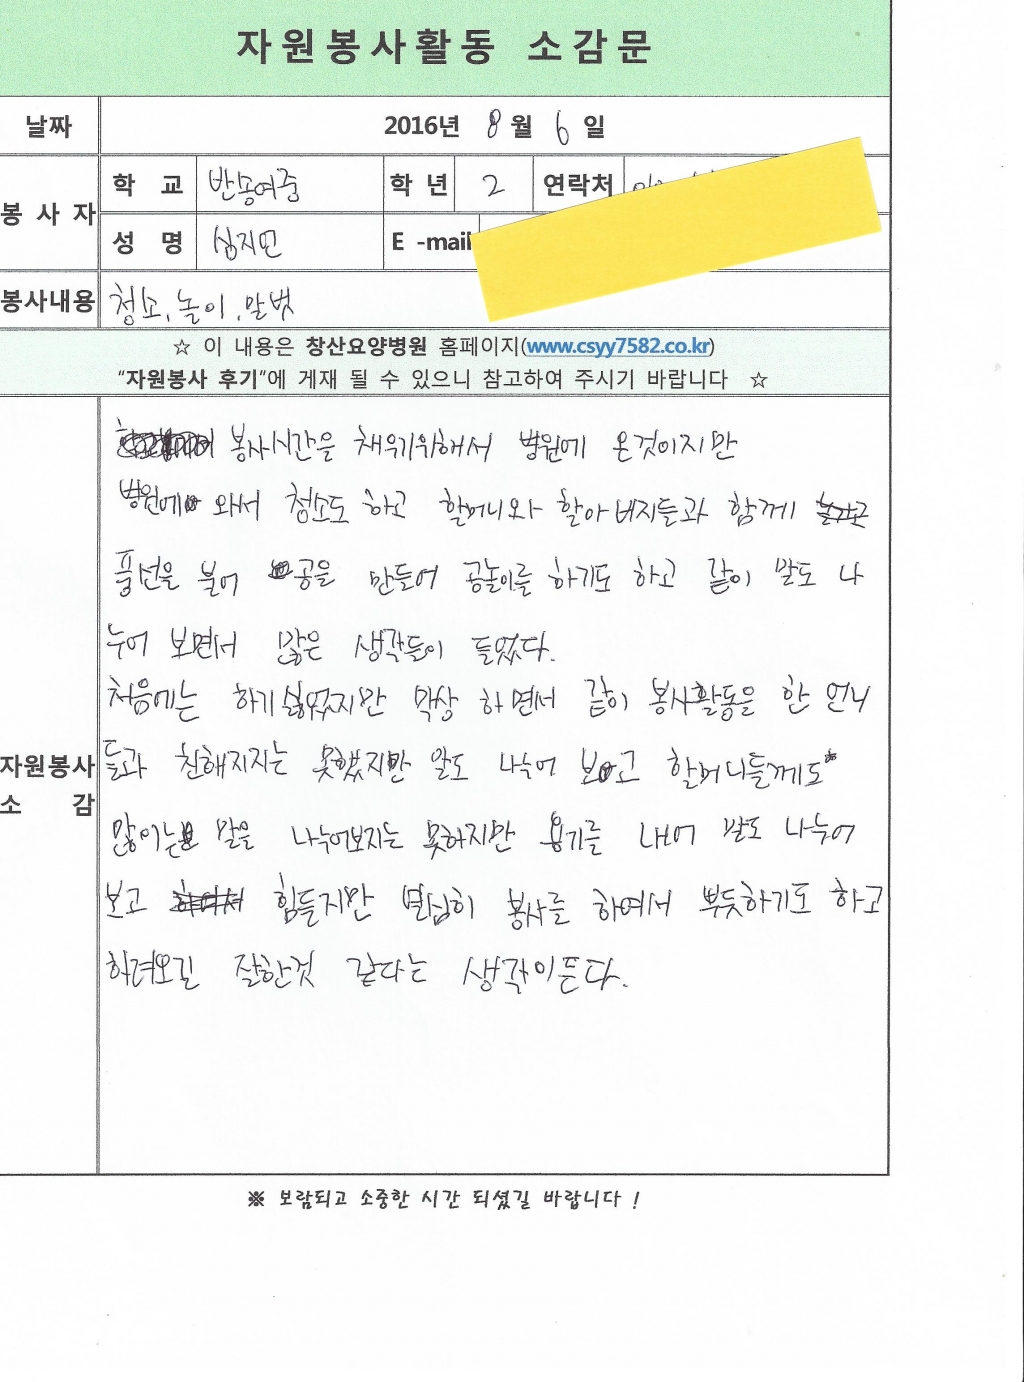 자원봉사활동 소감문
날짜 2016년 8월 6일
봉사자 학 교 반송여중 학년 2 연락처
성 명 심지민 E-mail
봉사내용 청소, 놀이, 말벗
☆ 이 내용은 창산요양병원 홈페이지(www.csyy7582.co.kr)
"자원봉사 후기"에 게재 될 수 있으니 참고하여 주시기 바랍니다 ☆
자원봉사 소 감
봉사시간을 채워기위해서 병원에 온것이지만
병원에 와서 청소도 하고 할머니와 할아버지들과 함께
풍선을 불어 공을 만들어 공놀이를 하기도 하고 같이 말도 나
누어 보면서 많은 생각들이 들었다.
처음에는 하기싫었지만 막상 하면서 같이 봉사활동을 한 언니
들과 친해지지는 못했지만 말도 나누어 보고 할머니들께도
많이는 말을 나누어보지는 못하지만 용기를 내어 말도 나누어
보고 힘들지만 열심히 봉사를 하여서 뿌듯하기도 하고
하려오길 잘한것 같다는 생각이든다.
※ 보람되고 소중한 시간 되셨길 바랍니다 !